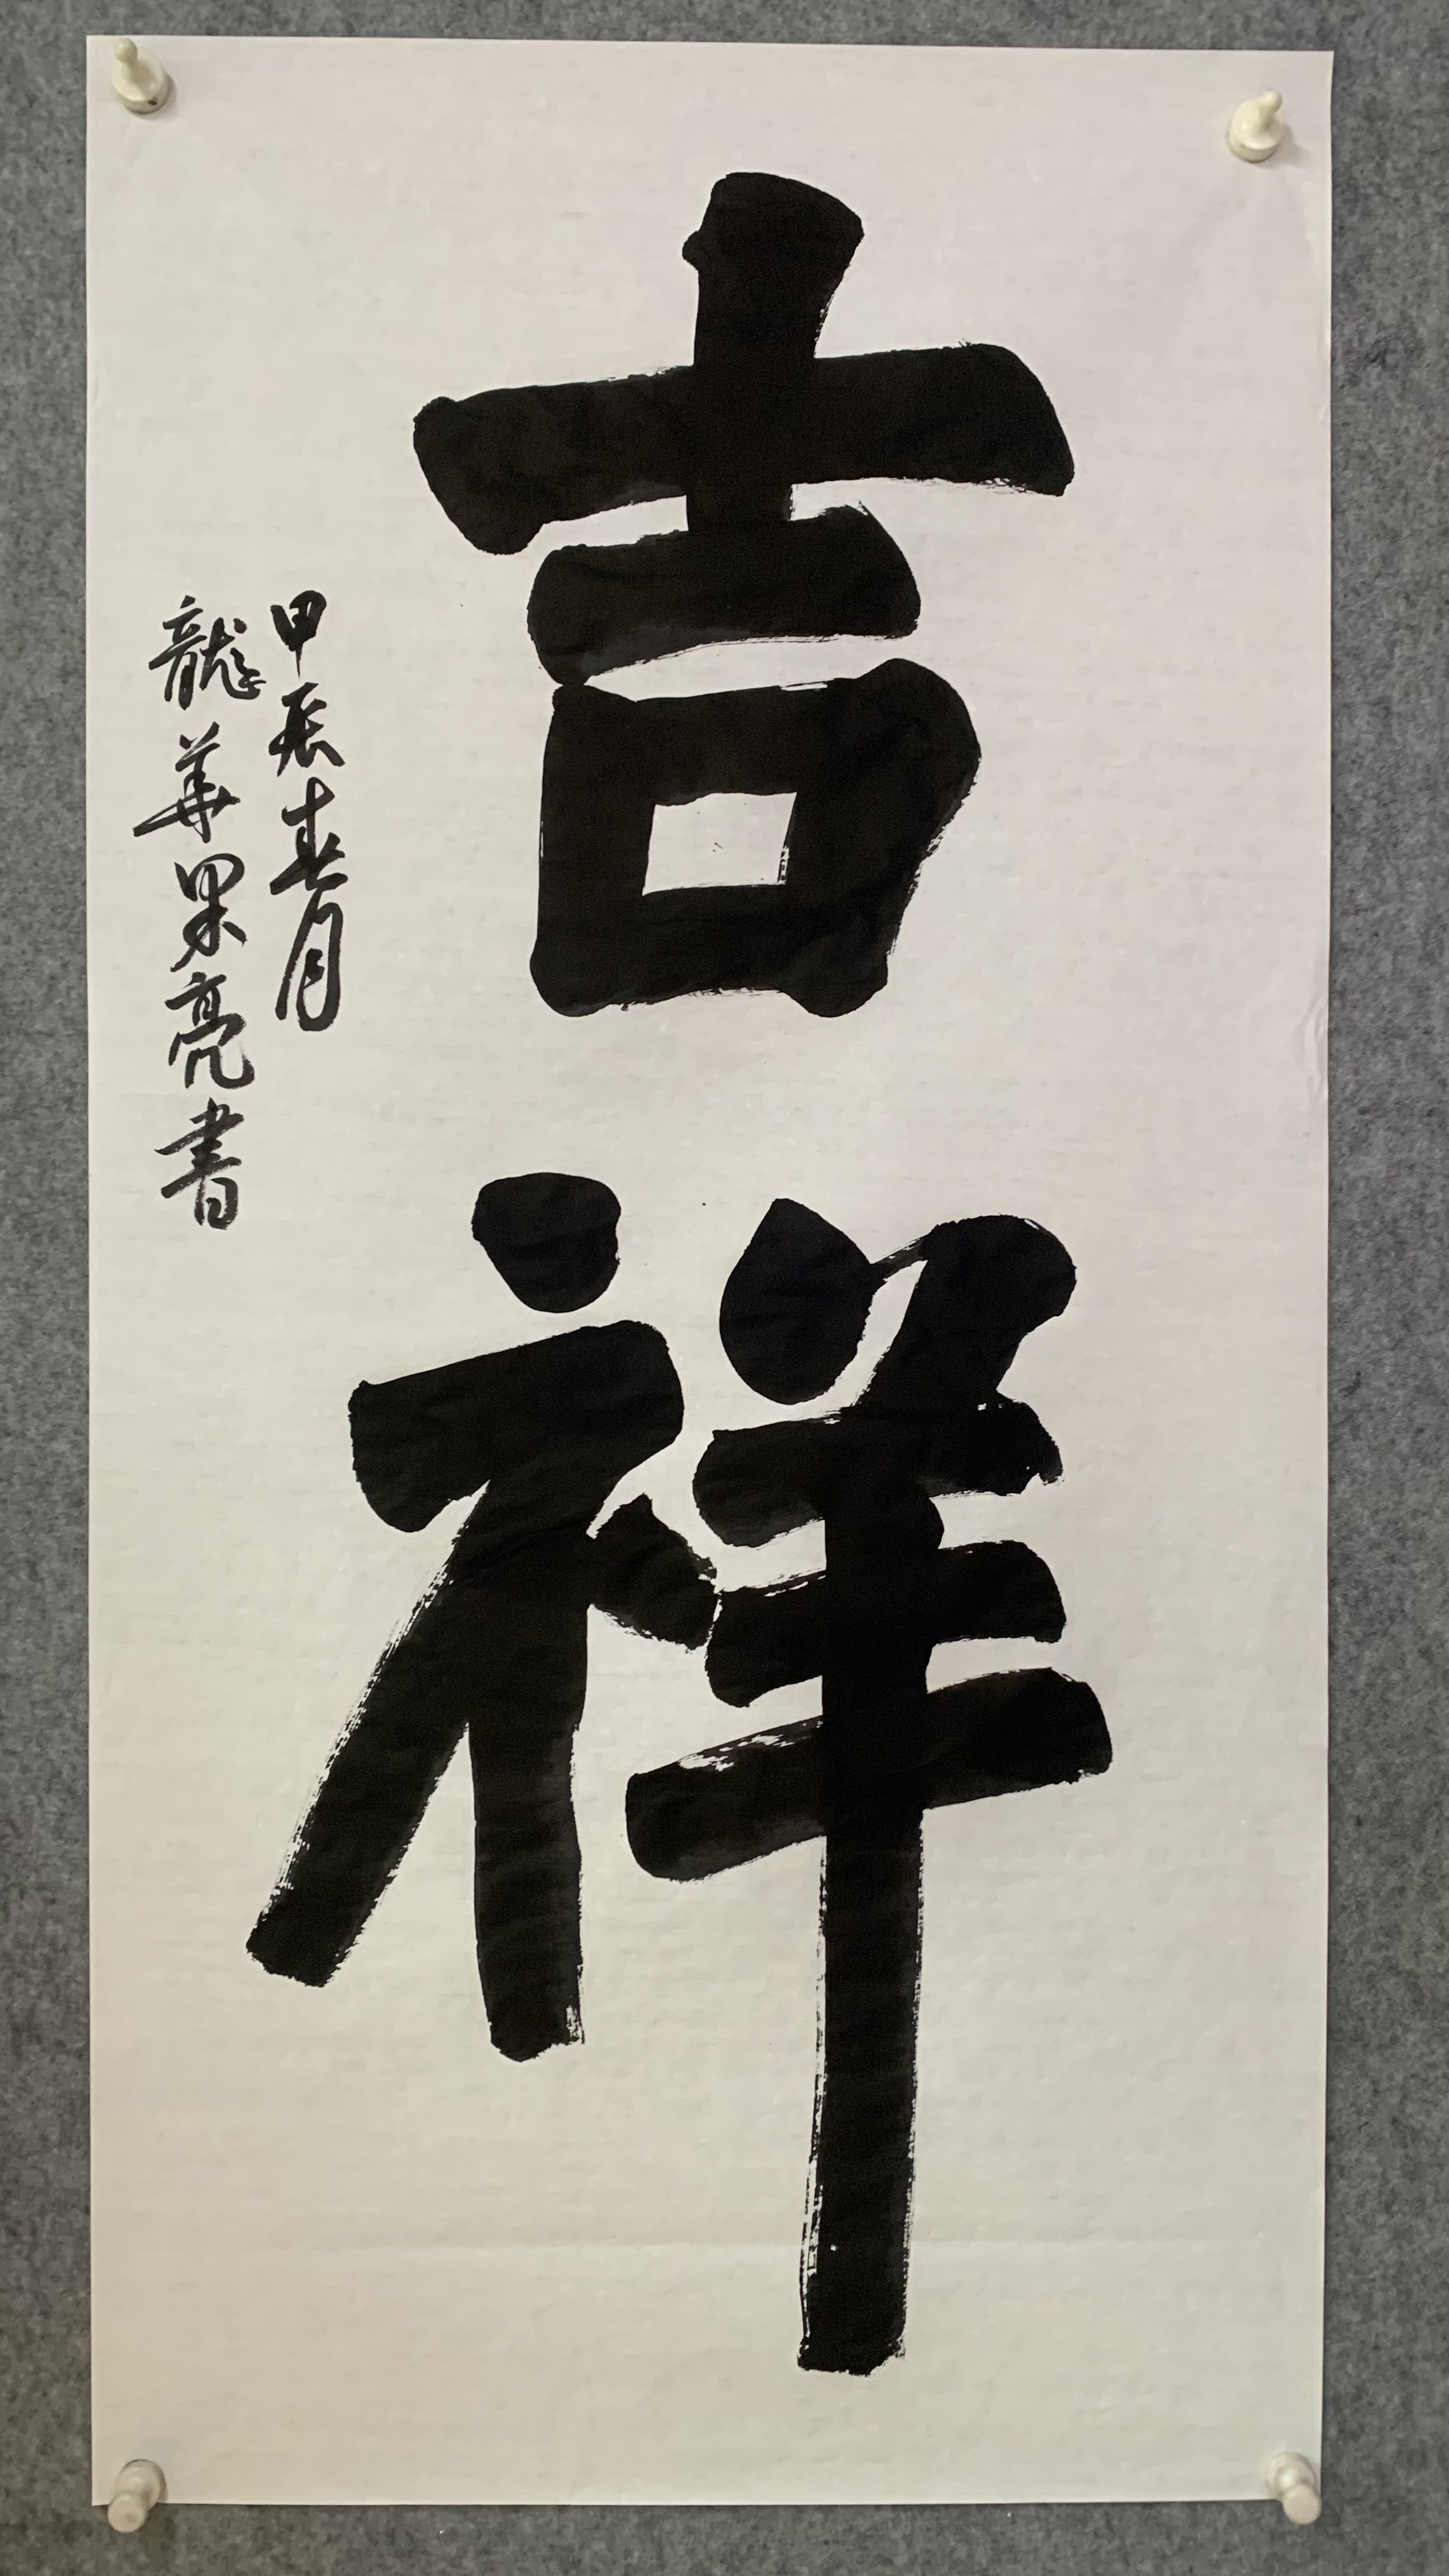 吉祥
甲辰春月
龍華果亮書